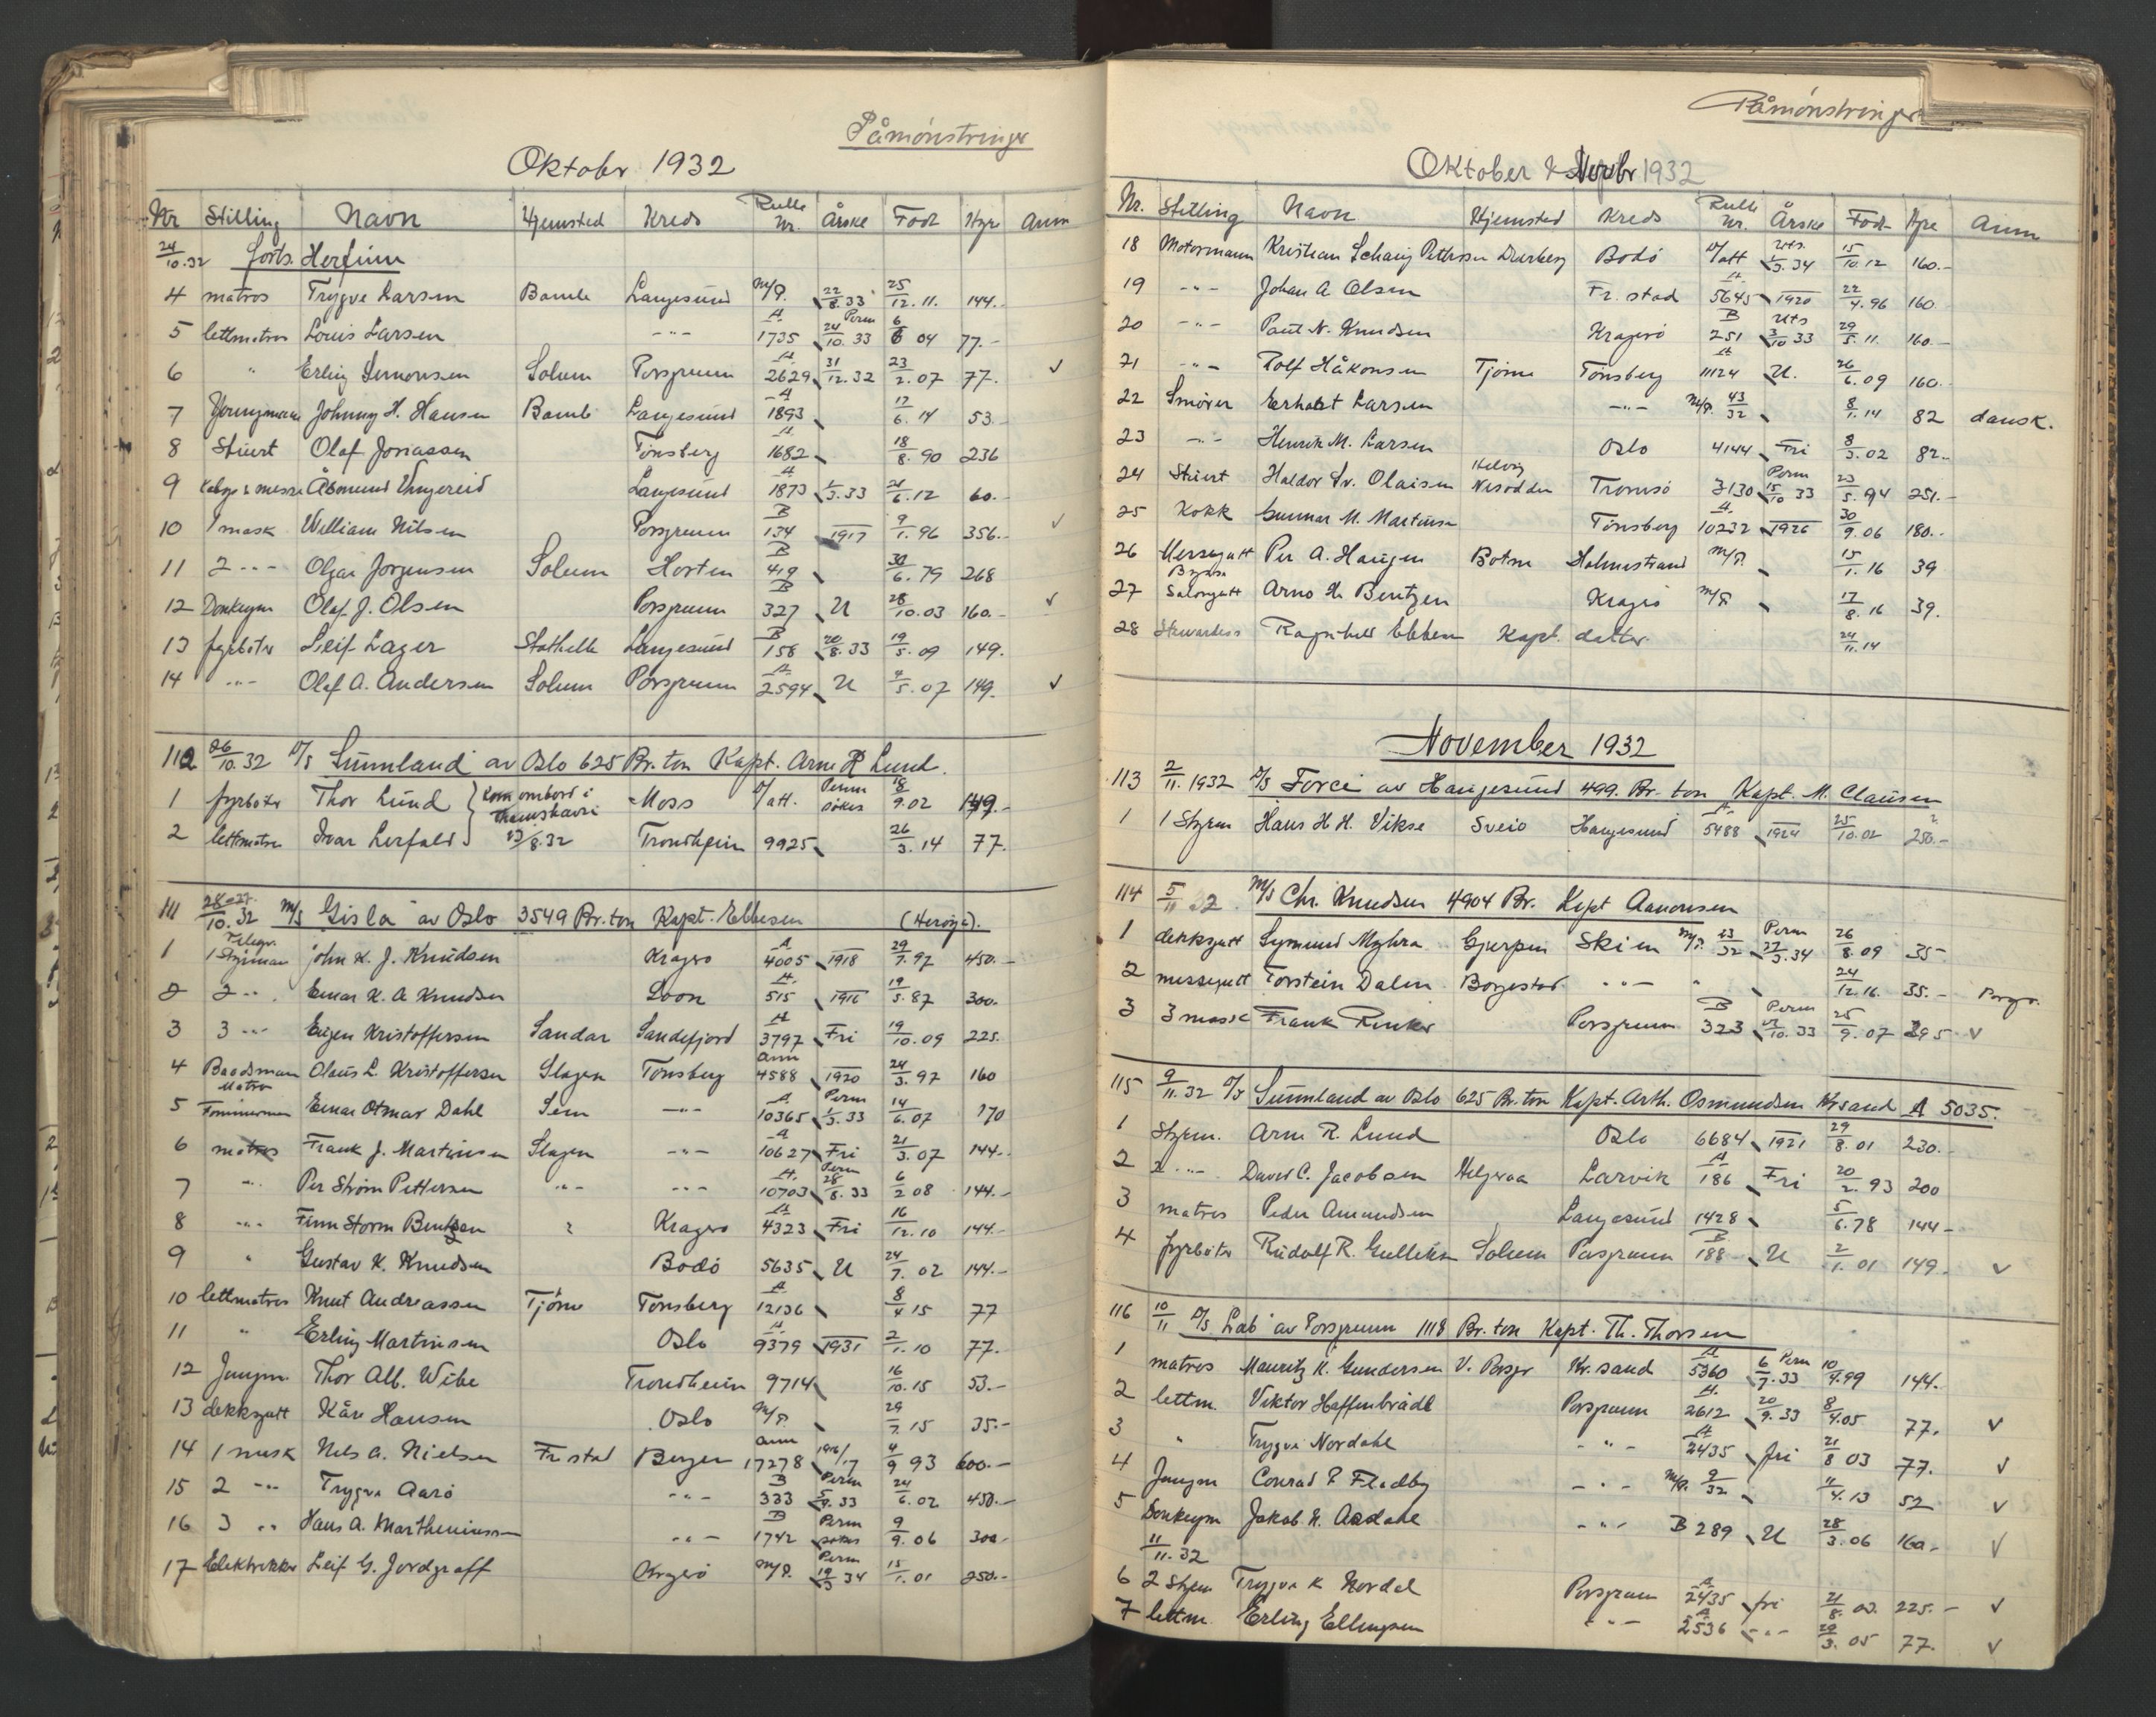 Påmønstringer
Oktobr 1932
Nr Stilling Navn Hjemsted Kreds Rulle Nr. Årskl Född Hyre Anm
24/10.32 forts. Herfinn
4 matros Trygve Larsen Bamle Langesund M/P. 22/8.33 25/12.11. 144.-
5 lettmatros Louis Larsen -"- A 1735 Perm 24/10.33 6/6 04 77.-
6 " Erling Simonsen Solum Porsgrunn A 2629 31/12.32 23/2.07 77. ✓
7 Youngmann Johnny H. Hansen Bamle Langesund A 1893 17/6.14 53.-
8 Stuert Olaf Jonassen Tönsberg A 1682 18/8.90 236
9 Åsmund Ungereid Langesund A 1873 1/3.33 21/6.12 60.-
10 1 mask William Nilsen Porsgrunn B 134 1917 9/1.96 356.- ✓
11 2 -"- Olgar Jorgensen Solum Horten B 419 30/6.79 268
12 Donkeym Olaf J. Olsen Porsgrunn B 327 U 28/10.03 160.- ✓
13 fyrböter Leif Lager Stathelle Langesund B 158 20/8.33 19/5.09 149.
14 -"- Olaf A. Andersen Solum Porsgrunn A 2594 U 4/5.07 149. ✓
112 26/10.32 D/S Sunnland av Oslo 625 Br. ton Kapt. Arne R Lund.
1 fyrböter Thor Lund } Kom ombord i Thamshavn Moss D/att. Perm sökes 18/9.02 149.-
2 lettmatros Ivar Lerfald } 13/8.32 Trondheim 9925 26/3.14 77.
111 28-29/10.32 M/S Gisla av Oslo 3549 Br. ton Kapt. Ebbesen (Heröya).
1 Telegr. 1 Styrman John K. J. Knudsen Kragerö A 4005 1918 29/7.97 450.-
2 2 -"- Einar K. A Knudsen Loon A 515 1916 19/5.87 300.
3 3 -"- Eugen Kristoffersen Sandar Sandefjord A 3797 Fri 19/10.09 225.
4 Baadsman Matros Olaus L. Kristoffersen Slagen Tönsberg Ann 4588 1920 24/3.97 160
5 Tömmerman Einar Otmar Dahl Sem -"- A 10365 Perm 1/3.33 14/6.07 170
6 matros Frank J. Martinsen Slagen -"- A 10627 Fri 21/3.07 144.-
7 -"- Per Ström Pettersen -"- -"- A 10703 Perm 28/8.33 6/2 08 144.-
8 -"- Finn Storm Bentzen " Kragerö A 4323 Fri 16/12.10 144.-
9 " Gustav K. Knudsen Bodö 5635 U 24/7.02 144.-
10 lettmatros Knut Andreassen Tjöme Tönsberg A 12136 8/4 15 77
11 " Erling Martinsen Oslo A 9379 1931 2/1.10 77.
12 Jungm. Thor Alb. Wibe Trondheim 9714 16/10.15 53.-
13 dekksgutt Kåre Hansen Oslo M/P. 29/7.15 35.-
14 1 mask Nils A. Nielsen Fr stad Bergen Ann 17278 1916/17 4/9 93 600.-
15 2 -"- Trygve Aarö -"- B 333 Perm 5/9.33 24/6.02 450.-
16 3 " Hans A. Marthinussen -"- B 1742 Perm sökes 9/9.06 300
17 Elektriker Leif G. Jordgraff Kragerö M/P. Perm 19/3 34 15/1.01 250.-
Påmönstringer
Oktober & Novbr 1932
Nr. Stilling Navn Hjemsted Kreds Rulle Nr. Årskl Född Hyre Anm
18 Motormann Kristian Schanj Pettersen Bodö D/att Uts. 1/3.34 15/10.12 160.-
19 -"- Johan A Olsen Fr. stad A 5645 1920 22/4.96 160
20 -"- Paul N. Knudsen Kragerö B 251 Uts 3/10 33 29/5.11. 160.-
21 -"- Rolf Håkonsen Tjöme Tönsberg A 11124 U. 26/6.09 160.
22 Smörer Erhardt Larsen -"- M/P. 43/32 8/1.14 82 dansk.
23 -"- Henrik M. Larsen Oslo 4144 Fri 8/3.02 82.-
24 Stuert Haldor Sv. Olaisen Nesodden Tromsö 3130 Perm 15/10 33 23/5.94 251.-
25 Kokk Gunnar M. Martinsen Tönsberg A 10232 1926 30/9.06 180..
26 Messegutt Per A. Haugen Botne Holmestrand M/P. 15/1.16 39
27 Bysse Salongutt Arno H. Bentzen Kragerö M/P. 17/8.16 39.
28 Stewardess Ragnhild Ebbesen Kapt. datter. 24/11.14
November 1932
113 2/11.1932 D/S Force av Haugesund 499. Br. ton Kapt. M. Clausen
1 1 Styrm Hans H H. Vikse Sveio Haugesund A 5488 1924 25/10.02 250.-
114 5/11 32 M/S Chr. Knudsen 4904 Br. Kapt Aanonsen
1 dekksgutt Sigmund Myhra Gjerpen Skien M/P. 13/32 Perm 27/3.34 26/8.09 35-
2 messegutt Torstein Dalen Borgestad -"- " 24/12.16. 35.- Porsgr.
3 3 mask Frank Rinker Porsgrunn B 323 Perm 10.33 25/9.07 295 ✓
115 9/11.32 D/S Sunnland av Oslo 625 Br. ton Kapt. Arth. Osmundsen Kr sand A 5035.
1 Styrm. Arne R. Lund Oslo 6684 1921 29/8.01 230.-
2 2 -"- David C. Jacobsen Helgeroa Larvik A 186 Fri 20/2.93 200
3 matros Peder Amundsen Langesund 1428 5/6.78 144-
4 fyrböter Rudolf R. Gulliksen Solum Porsgrunn B 188 U 2/1.01 149. ✓
116 10/11 D/S Lab av Porsgrunn 1118 Br. ton Kapt. Th. Thorsen
1 matros Mauritz K. Gundersen V. Porsgr Kr. sand A 5360 Perm 6/7.33 10/4.99 144.
2 lettm. Viktor Haffenbrädl Porsgrunn A 2612 20/9.33 8/4.05 77. ✓
3 " Trygve Nordahl -"- A 2435 fri 21/8 03 77. ✓
4 Jungm Conrad P Fladby -"- M/P. 9/32 11/4.13 52 ✓
5 Donkeym Jakob N. Aasdahl -"- B 289 U 28/3.06 160.- ✓
11/11.32
6 2 Styrm Trygve K Nordal Porsgrunn A 2435 fri 21/8.03. 225.- ✓
7 lettm. Erling Ellingsen -"- A 2536 -"- 29/3.05 77. ✓